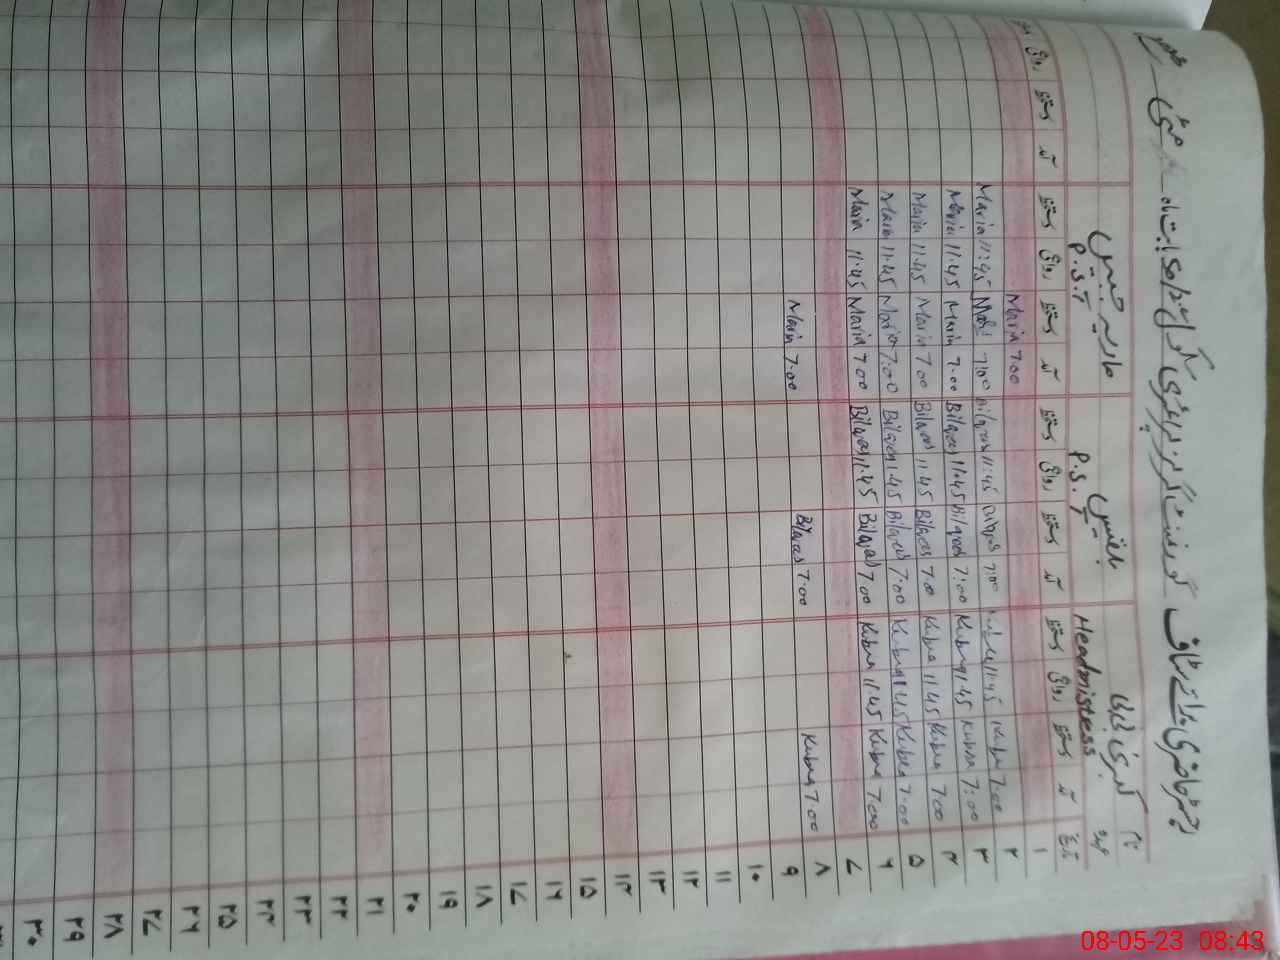 رجسٹر حاضری برائے سٹاف گورنمنٹ گرلز پرائمری سکول بابت ماہ مئی
نام کبریٰ بلقیس ماریہ
عہدہ Headmistress P.S.T P.S.T
تاریخ آمد دستخط روانگی دستخط آمد دستخط روانگی دستخط آمد دستخط روانگی دستخط آمد دستخط روانگی
۱
۲ Maria 7:00
۳ Kubra 7:00 11:45 7:00 Bilqees 11:45 7:00 Maria 11:45
۴ Kubra 7:00 Kubra 11:45 Bilqees 7:00 Bilqees 11:45 Maria 7:00 Maria 11:45
۵ Kubra 7:00 Kubra 11:45 Bilqees 7:00 Bilqees 11:45 Maria 7:00 Maria 11:45
۶ Kubra 7:00 Kubra 11:45 Bilqees 7:00 Bilqees 11:45 Maria 7:00 Maria 11:45
۷ Kubra 7:00 Kubra 11:45 Bilqees 7:00 Bilqees 11:45 Maria 7:00 Maria 11:45
۸ Kubra 7:00 Bilqees 7:00 Maria 7:00
۹
۱۰
۱۱
۱۲
۱۳
۱۴
۱۵
۱۶
۱۷
۱۸
۱۹
۲۰
۲۱
۲۲
۲۳
۲۴
۲۵
۲۶
۲۷
۲۸
۲۹
۳۰
08-05-23 08:43